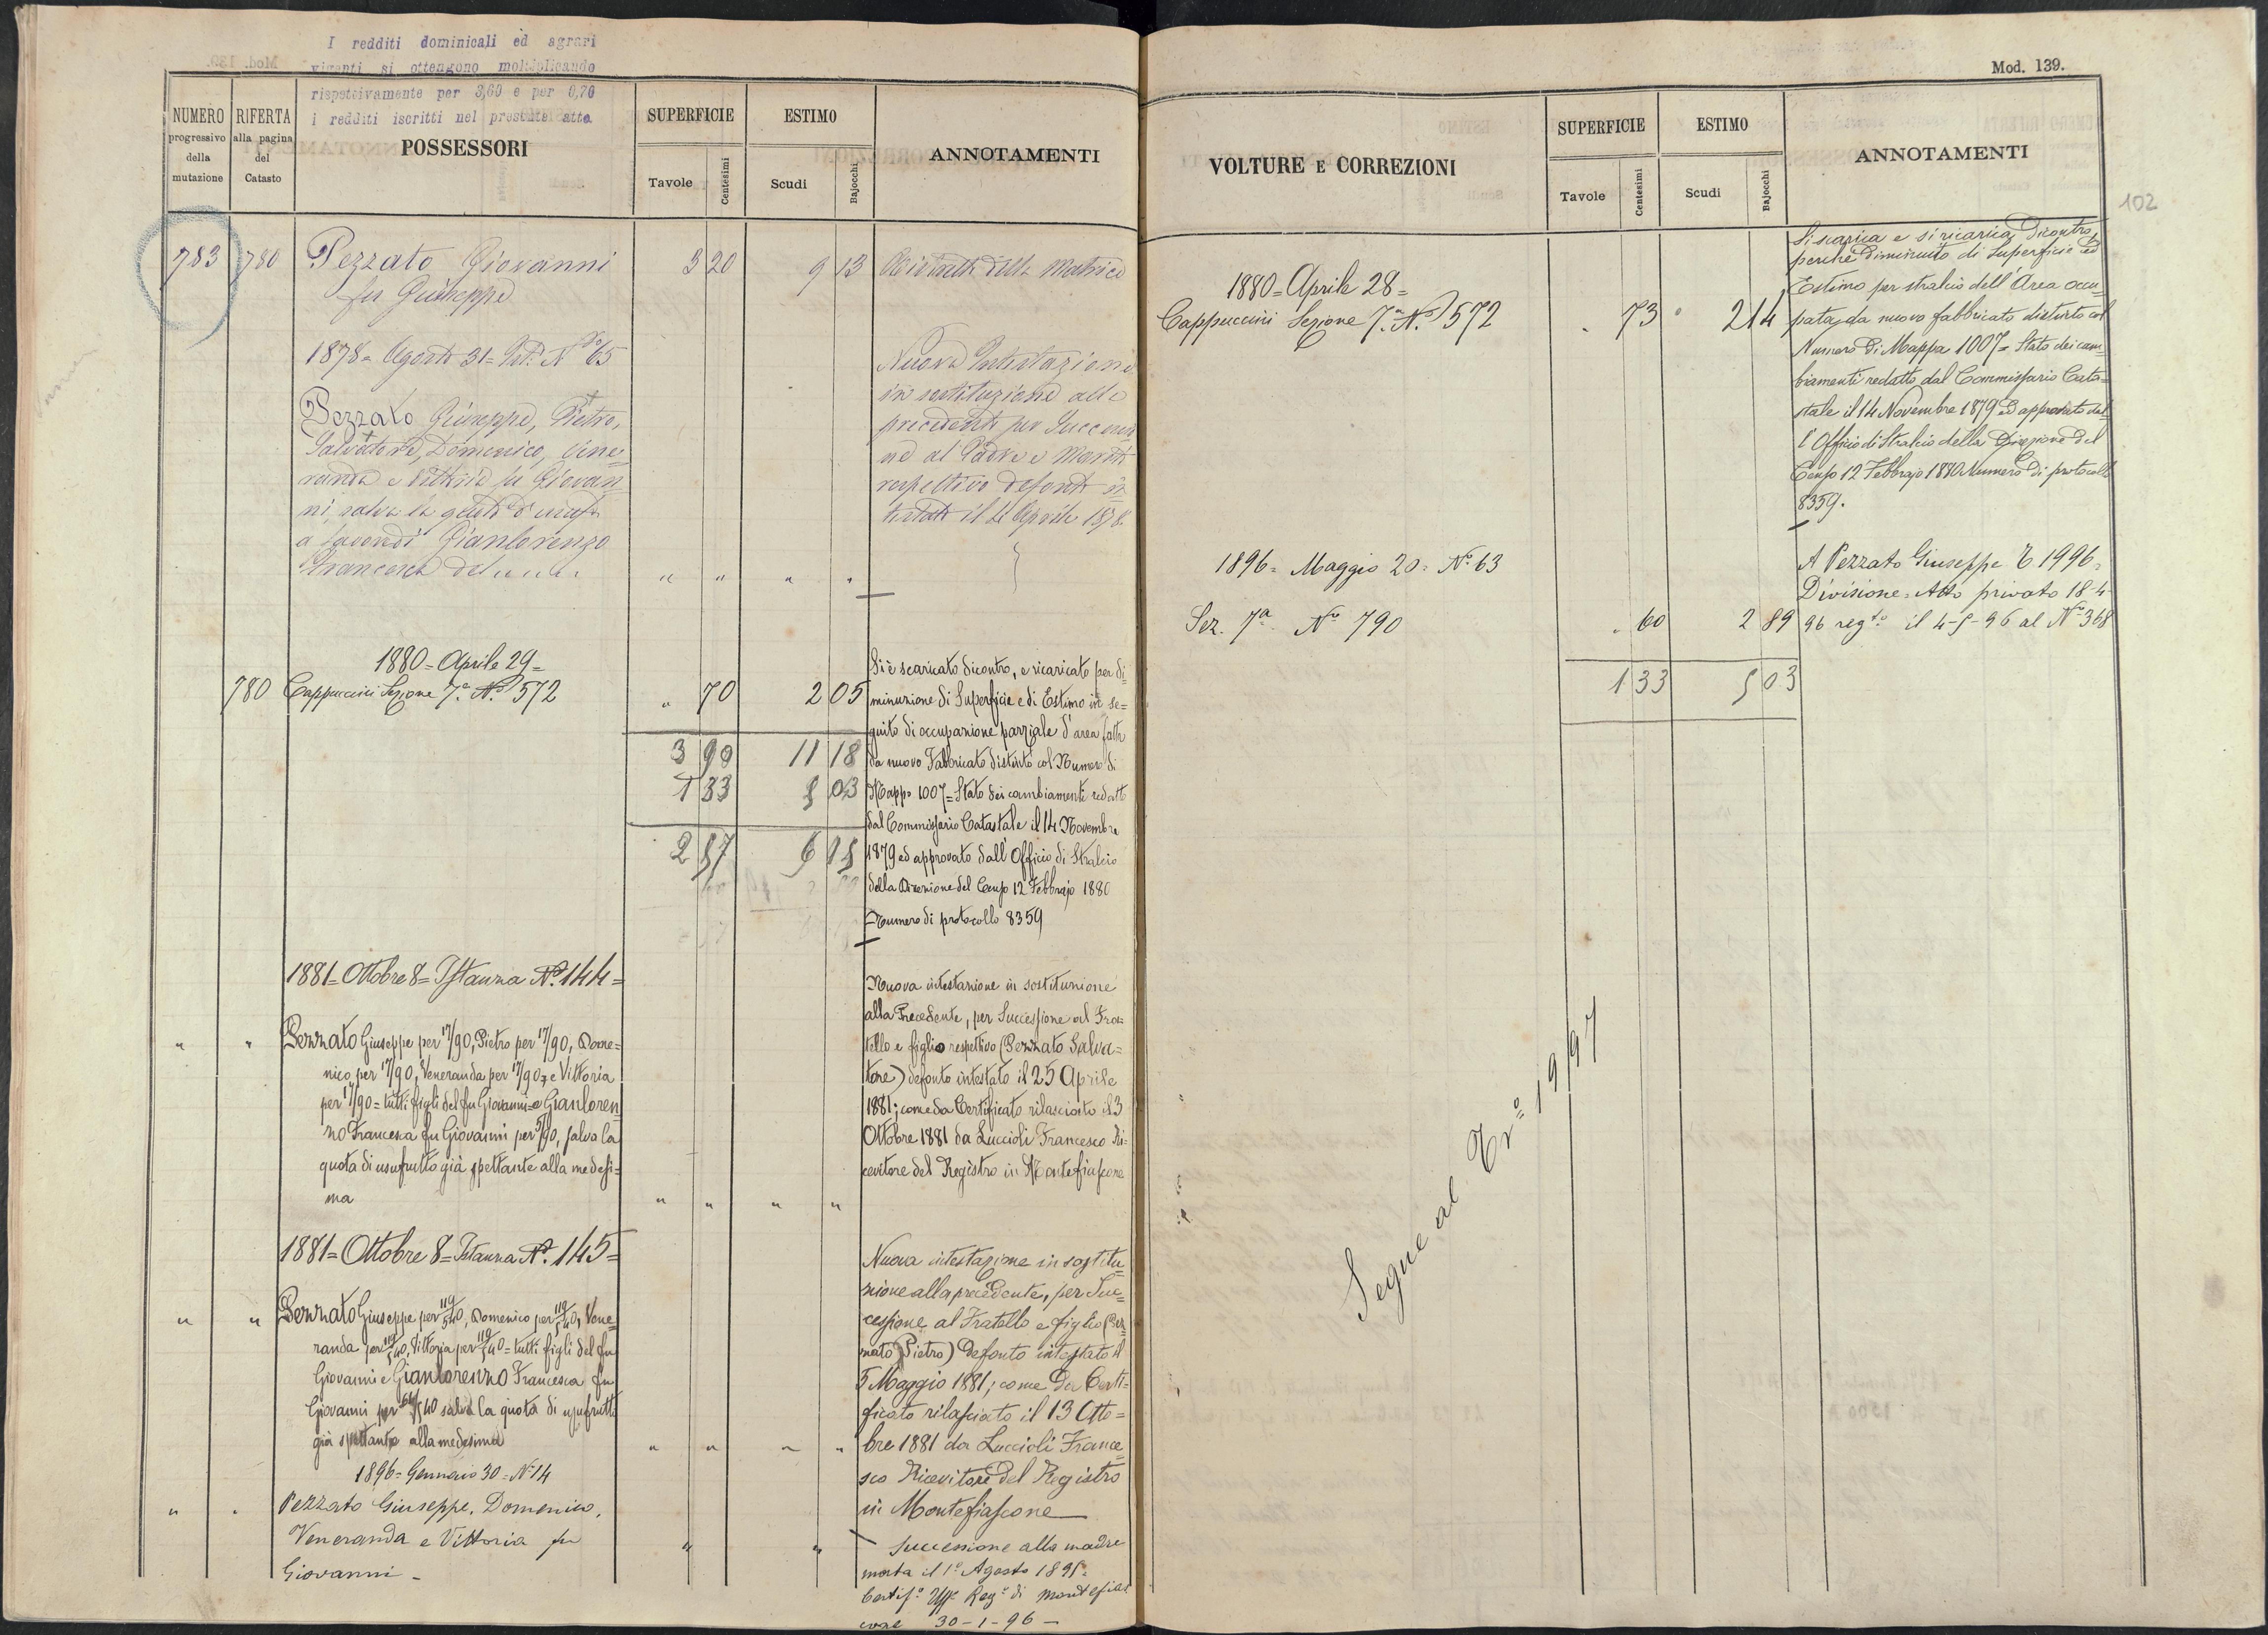 I redditi dominicali ed agrari
vigenti si ottengono moltiplicando
rispettivamente per 3,60 e per 0,70
i redditi iscritti nel presente atto.
NUMERO
progressivo
della
mutazione
RIFERTA
alla pagina
del
Catasto
POSSESSORI
SUPERFICIE
Tavole
Centesimi
ESTIMO
Scudi
Bajocchi
ANNOTAMENTI
783 780 Pezzato Giovanni 3 20 9 13
fu Giuseppe
1878 = Agosto 31 = N° 65
Nuova Intestazione
in sostituzione alla
precedente per Success
ne al Padre e Marito
respettivo defonto in
testato il Aprile 1878.
Pezzato Giuseppe, Pietro,
Salvatore, Domenico, Vene=
randa e Vittoria fu Giovan=
ni, salva la quota d'usuf.
a favore di Gianlorenzo
Francesca " " " "
1880 = Aprile 29 =
780 Cappuccini Sezione 7.ª N.° 572 " 70 2 05
Si è scaricato dicontro, e ricaricato per di=
minuzione di Superficie e di Estimo in se=
guito di occupazione parziale d'area fatta
da nuovo Fabbricato distinto col Numero di
Mappa 1007 = Stato dei cambiamenti redatto
dal Commissario Catastale il 14 Novembre
1879 ed approvato dall'Officio di Stralcio
della Direzione del Censo 12 Febbrajo 1880
= Numero di protocollo 8359
3 90 11 18
1 33 5 03
2 57 6 15
1881 = Ottobre 8 = Istanza N.° 144 =
" " Pezzato Giuseppe per 17/90, Pietro per 17/90, Dome=
nico per 17/90, Veneranda per 17/90, e Vittoria
per 17/90 = tutti figli del fu Giovanni = e Gianloren=
zo Francesca fu Giovanni per 5/90, salva la
quota di usufrutto già spettante alla medesi=
ma " " " "
Nuova intestazione in sostituzione
alla Precedente, per Successione al Fra=
tello e figlio respettivo (Pezzato Salva=
tore) defonto intestato il 25 Aprile
1881; come da Certificato rilasciato il 3
Ottobre 1881 da Luccioli Francesco Ri=
cevitore del Registro in Montefiascone
1881 = Ottobre 8 = Istanza N.° 145 =
" " Pezzato Giuseppe per 119/540, Domenico per 119/540, Vene=
randa per 119/540, Vittoria per 119/540 = tutti figli del fu
Giovanni e Gianlorenzo Francesca fu
Giovanni per 64/540 salva la quota di usufrutto
già spettante alla medesima " " " "
Nuova intestazione in sostitu=
zione alla precedente, per Suc=
cessione al Fratello e figlio (Pez=
zato Pietro) defonto intestato il
5 Maggio 1881; come da Certi=
ficato rilasciato il 13 Otto=
bre 1881 da Luccioli France=
sco Ricevitore del Registro
in Montefiascone
1896 = Gennaio 30 = N° 14
" " Pezzato Giuseppe, Domenico,
Veneranda e Vittoria fu " "
Giovanni -
Successione alla madre
morta il 1° Agosto 1895.
Certif.° Uff. Reg.° di Montefias
cone 30-1-96 -
Mod. 139.
VOLTURE E CORREZIONI
SUPERFICIE
Tavole
Centesimi
ESTIMO
Scudi
Bajocchi
ANNOTAMENTI
102
1880 = Aprile 28 =
Cappuccini Sezione 7.ª N.° 572 . 73 2 14
Si scarica e si ricarica dicontro,
perchè diminuito di Superficie ed
Estimo per stralcio dell'Area occu=
pata da nuovo fabbricato distinto col
Numero di Mappa 1007 = Stato dei cam=
biamenti redatto dal Commissario Cata=
stale il 14 Novembre 1879 ed approvato dal=
l'Officio di Stralcio della Direzione del
Censo 12 Febbrajo 1880 Numero di protocollo
8359.
1896 = Maggio 20 = N° 63
Sez. 7ª N° 790 . 60 2 89
A Pezzato Giuseppe 1996 =
Divisione = Atto privato 18-4-
96 reg.to il 4-5-96 al N° 368
1 33 5 03
Segue al Tr.° 1997